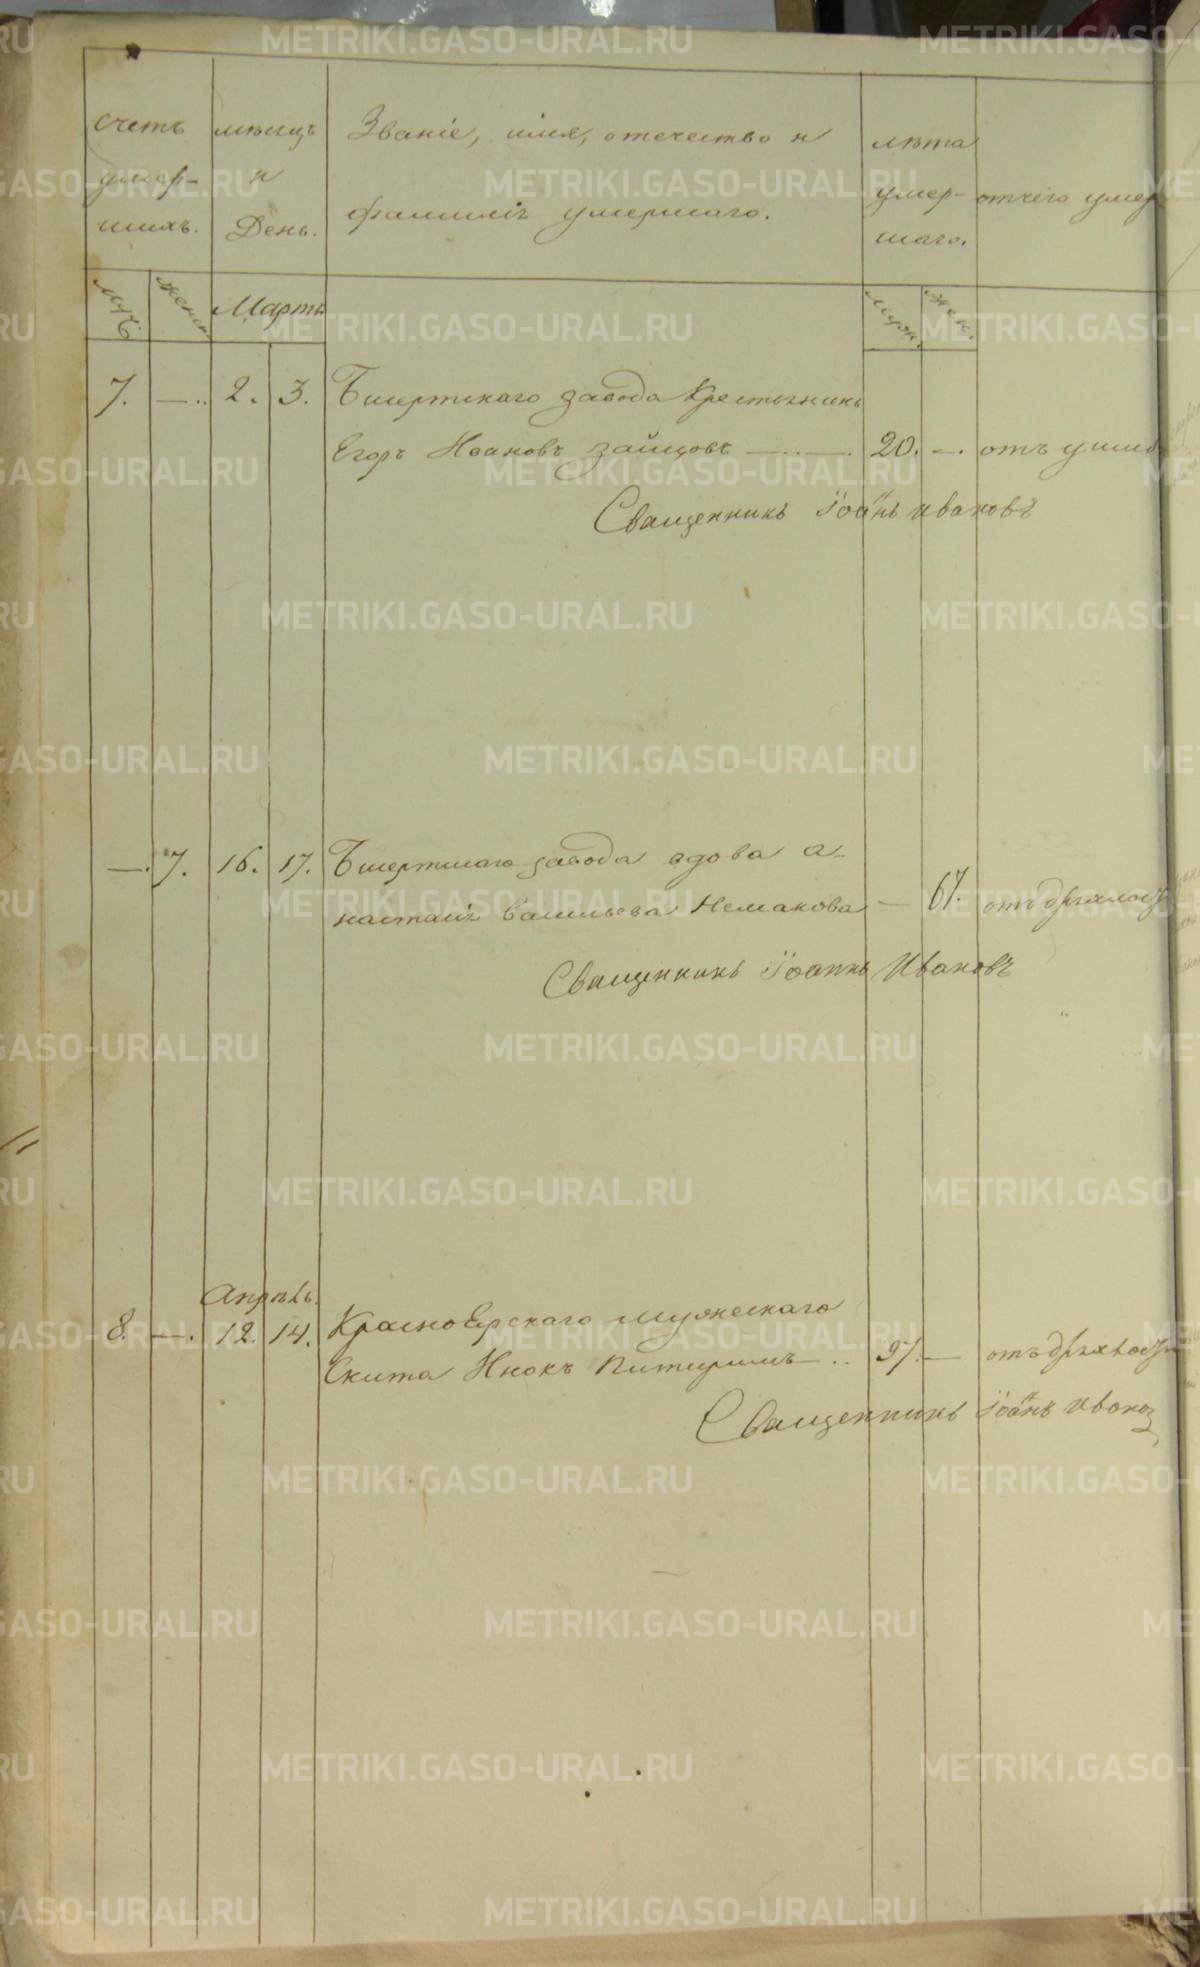 Счетъ умер- шихъ.
мѣсяцъ и День.
Званіе, имя, отечество и
фамилія умершаго.
лѣта умер- шаго.
отчего умер
муж. женск. Мартъ муж. жен.
7. — .. 2. 3. Бисертскаго завода Крестьянинъ
Егоръ Ивановъ Зайцовъ — .. — . 20. — . отъ ушиб
Священникъ Іоаннъ Ивановъ
— . 7. 16. 17. Бисертскаго завода вдова а-
настасія Васильева — 67. отъ дряхлости
Священникъ Іоаннъ Ивановъ
Апрѣль.
8. — . 12. 14. Красноярскаго мужескаго
Скита Инокъ Питиримъ — .. 97. — отъ дряхлости
Священникъ Іоаннъ Ивановъ
METRIKI.GASO-URAL.RU